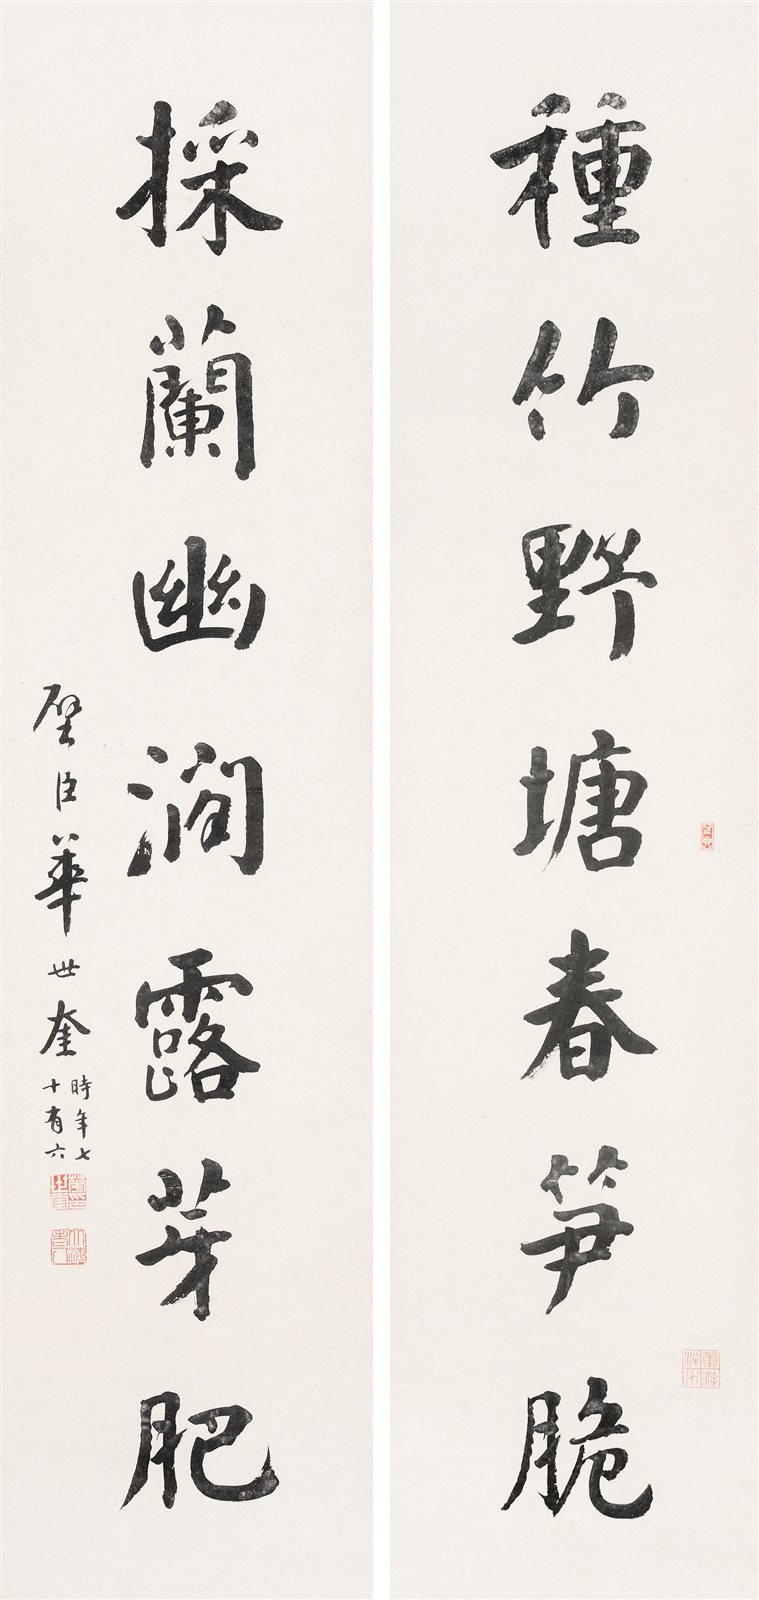 種竹野塘春笋脆
採蘭幽澗露芽肥
璧臣華世奎
時年七
十有六